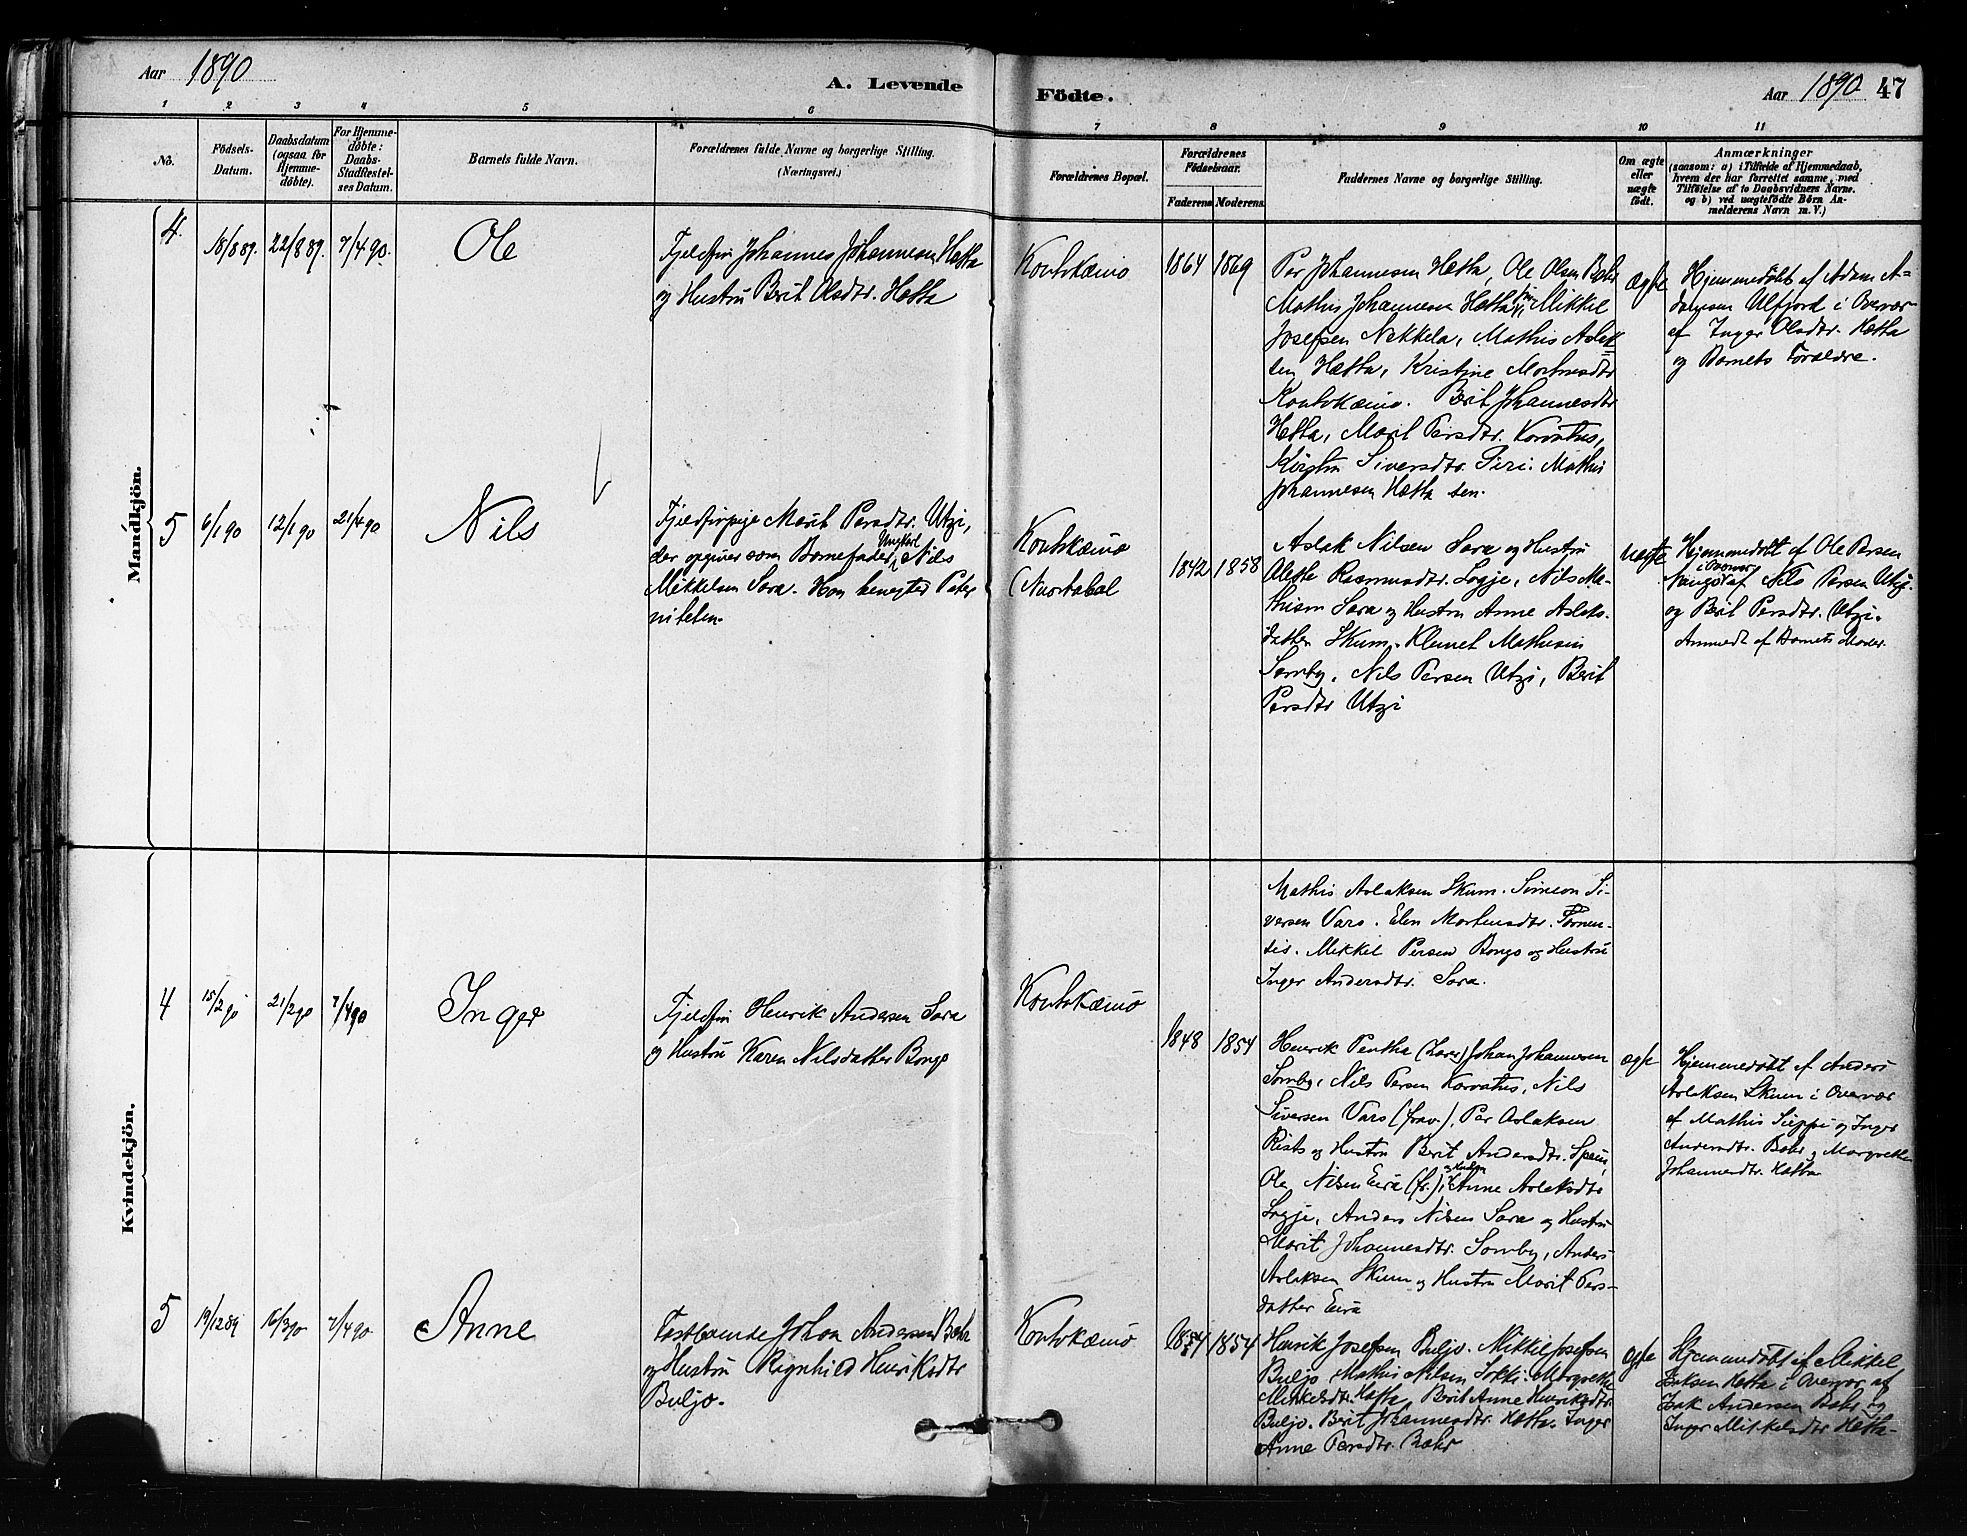 Aar 1890
A. Levende
Födte.
Aar 1890 47
1 2 3 4 5 6 7 8 9 10 11
No.
Födsels-
Datum.
Daabsdatum
(ogsaa for
Hjemme-
döbte).
For Hjemme-
döbte:
Daabs-
Stadfæstel-
ses Datum.
Barnets fulde Navn.
Forældrenes fulde Navne og borgerlige Stilling.
(Næringsvei.)
Forældrenes Bopæl.
Forældrenes
Födselsaar.
Faderens Moderens
Faddernes Navne og borgerlige Stilling.
Om ægte
eller
uægte
födt.
Anmærkninger
(saasom: a) i Tilfælde af Hjemmedaab,
hvem der har forrettet samme, med
Tilföielse af to Daabsvidners Navne.
og b) ved uægtefödte Börn An-
melderens Navn m. V.)
Mandkjön.
4
18/8 89. 22/8 89. 7/4 90.
Ole
Fjeldfin Johannes Johannesen Hætta
og Hustru Berit Olsdtr. Hætta
Koutokæino
1864 1869
Per Johannesen Hætta, Ole Olsen Bæhr
Mathis Johannesen Hætta jr. Mikkel
Josefsen Nækkela, Mathis Aslak-
sen Hætta, Kristine Mortensdtr
Koutokæino. Berit Johannesdtr
Hætta, Marit Persdtr. Korvatus,
Kirsten Siversdtr. Siri. Mathis
Johannesen Hætta sen.
ægte
Hjemmedøbt af Adam A-
damsen Ulfjord i Overvær
af Inger Olsdtr. Hætta
og Barnets Forældre.
5
6/1 90 12/1 90 21/4 90
Nils
Fjeldfinpige Marit Persdtr. Utzi,
der opgiver som Barnefader Ungkarl Nils
Mikkelsen Sara. Han benegted Pater
niteten.
Koutokæino
(Nuortabal
1842 1858
Aslak Nilsen Sara og Hustru
Alette Rasmusdtr. Logje, Nils Ma-
thisen Sara og Hustru Anne Aslaks-
datter Skum. Klemet Mathisen
Somby, Nils Persen Utzi, Berit
Persdtr Utzi
uægte
Hjemmedøbt af Ole Persen
i Overvær af Nils Persen Utzi
og Berit Persdtr. Utzi.
Anmeldt af Barnets Moder.
Kvindekjön.
4
15/2 90 21/2 90 7/4 90
Inger
Fjeldfin Henrik Andersen Sara
og Hustru Karen Nilsdatter Bongo
Koutokæino
1848 1854
Mathis Aslaksen Skum. Simeon Si-
versen Vars. Elen Mortensdtr. Tornen-
sis. Mikkel Persen Bongo og Hustru
Inger Andersdtr. Sara.
Henrik Pentha (Lars) Johan Johannesen
Somby, Nils Persen Korvatus, Nils
Siversen Vars (frav.), Per Aslaksen
Rists og Hustru Berit Andersdtr. Spein,
Ole Nilsen Eira (fr.) og Hustru Anne Aslaksdtr
Logje, Anders Nilsen Sara og Hustru
Marit Johannesdtr. Somby, Anders
Aslaksen Skum og Hustru Marit Pers-
datter Eira
ægte
Hjemmedøbt af Anders
Aslaksen Skum i Overvær
af Mathis Sieppi og Inger
Andersdtr. Bæhr og Margrethe
Johannesdtr. Hætta
5
19/12 89 16/3 90 7/4 90
Anne
Fastboende Johan Andersen Bæhr
og Hustru Ragnhild Henriksdtr
Buljo.
Koutokæino
1854 1854
Henrik Josefsen Buljo. Mikkel Josefsen
Buljo Mathis Nilsen Sokki. Margrethe
Mikkelsdtr. Hætta Berit Anne Henriksdtr.
Buljo. Berit Johannesdtr. Hætta. Inger
Anne Persdtr. Bæhr
ægte
Hjemmedøbt af Mikkel
Isaksen Hætta i Overvær af
Isak Andersen Bæhr og
Inger Mikkelsdtr Hætta-